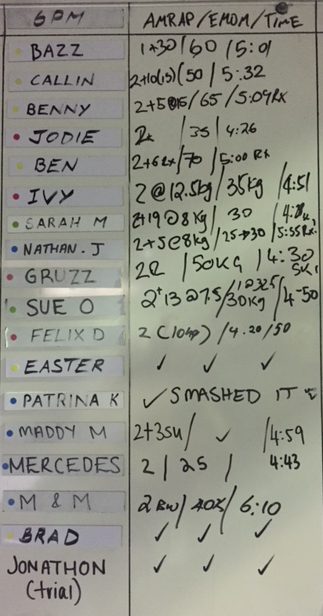 6PM AMRAP/EMOM/TIME
BAZZ 1+30/60/5:01
CALLIN 2+10(15)(50/5:32
BENNY 2+5@15/65/5:09Rx
JODIE 2x/35/4:26
BEN 2+6Rx/70/5:00 Rx
IVY 2@12.5kg/35kg/4:51
SARAH M 2+19@8kg/30
NATHAN.J 2+5@8kg/25→30/5:55Rx.
GRUZZ 22/50KG/4:30 5K
SUE O 2+13@7.5/30kg/4-50
FELIX D 2(10kg)/4.20/50
EASTER ✓ ✓ ✓
PATRINA K ✓ SMASHED IT
MADDY M 2+3SU/✓/4:59
MERCEDES 2/25/4:43
M & M 2BW/40x/6:10
BRAD ✓ ✓ ✓
JONATHON ✓ ✓ ✓
(trial)